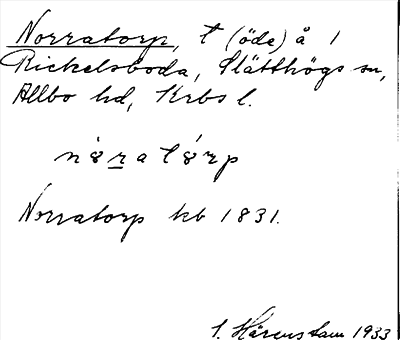 Norratorp, t (öde) å 1
Rickelsboda, Slätthögs sn,
Allbo hd, Krbs l.
nȯ́r̲atȯ́rp
Norratorp kb 1831.
S. Härenstam 1933